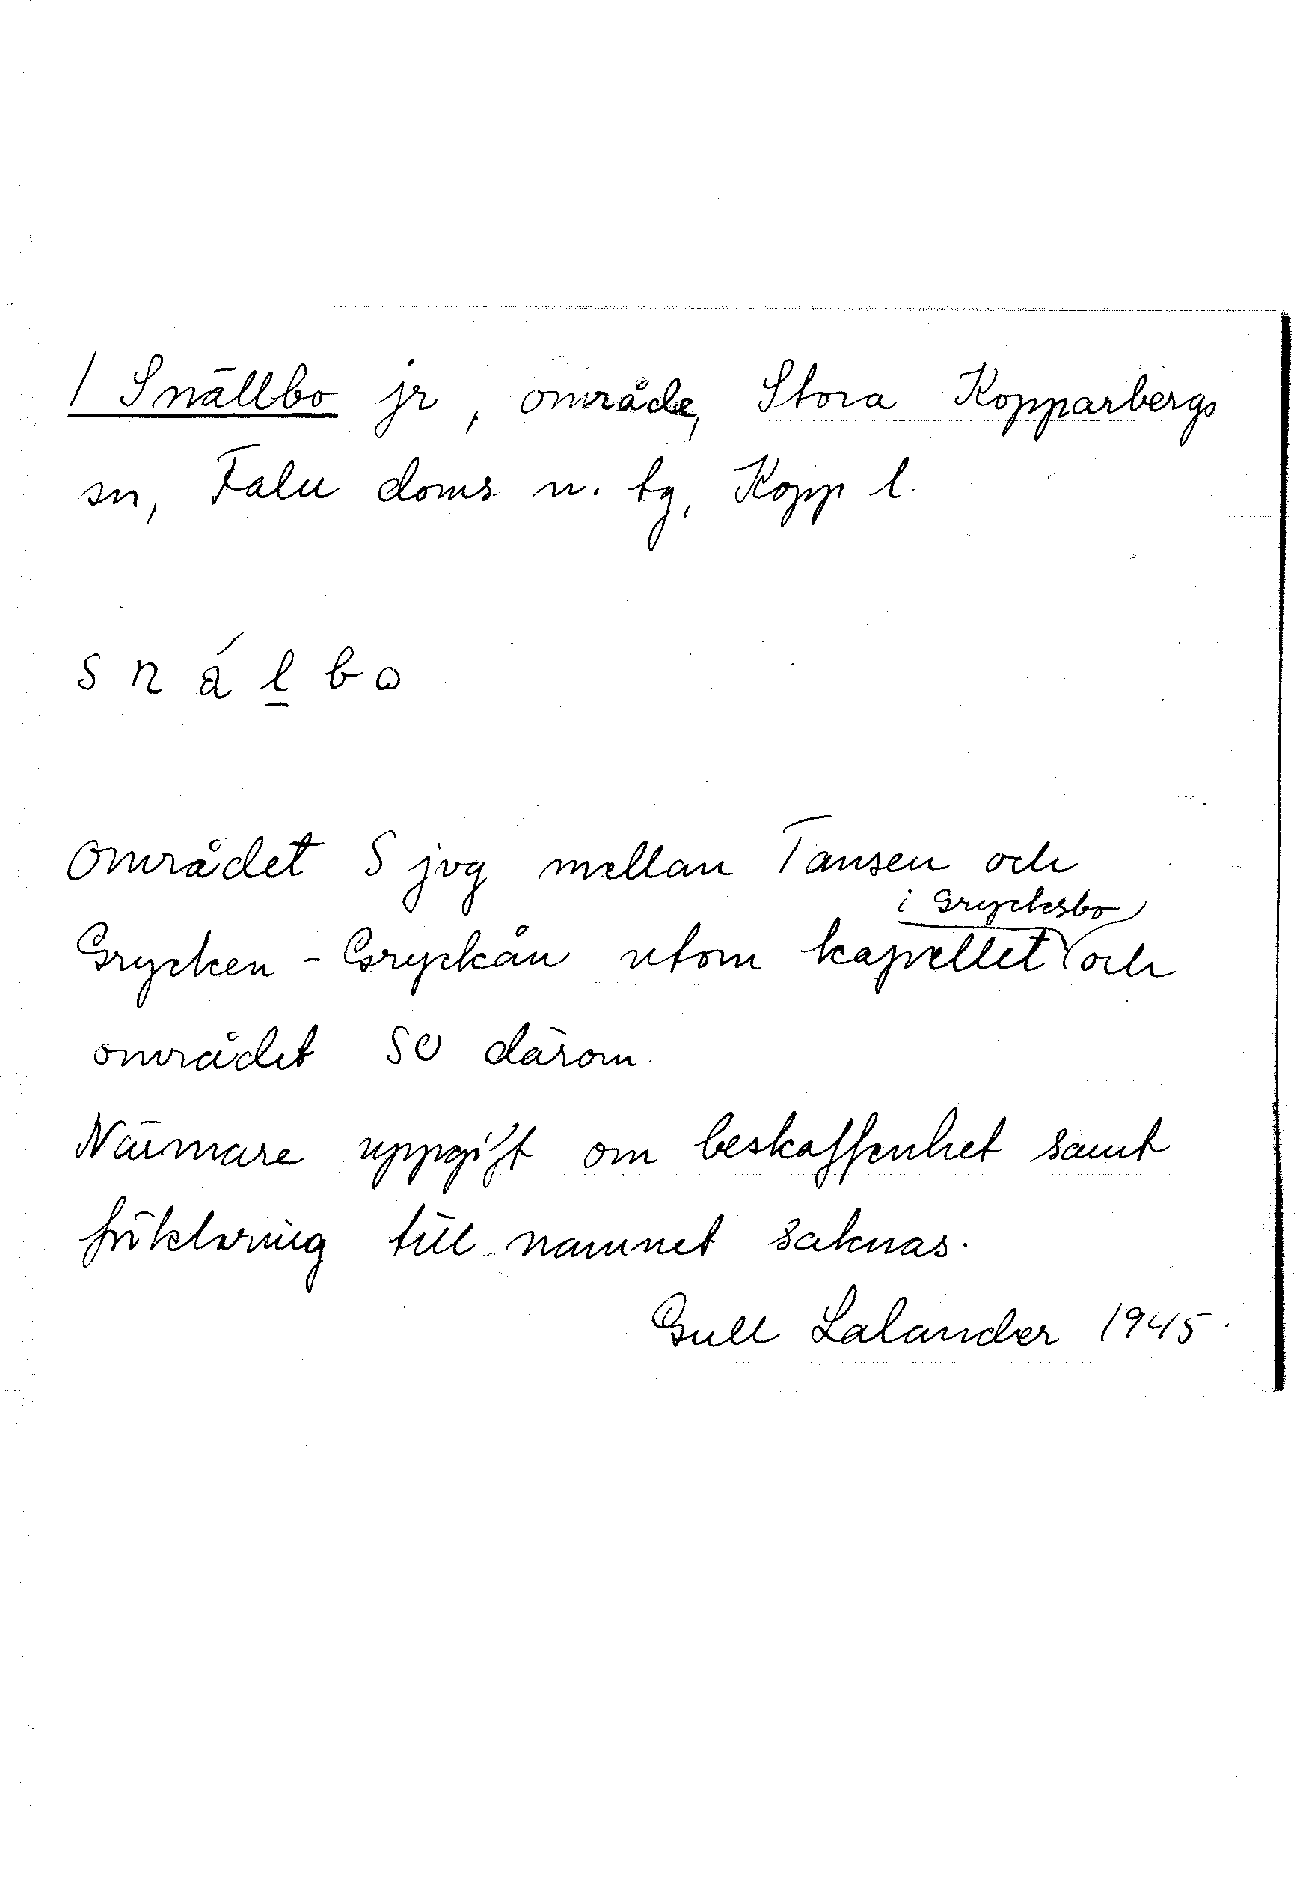 / Snällbo jr, område, Stora Kopparbergs
sn, Falu doms n. tg, Kopp l.
s n á l b o
Området S jvg mellan Tansen och
i Grycksbo
Grycken - Gryckån utom kapellet och
området SO därom.
Närmare uppgift om beskaffenhet samt
förklaring till namnet saknas.
Gull Lalander 1945.